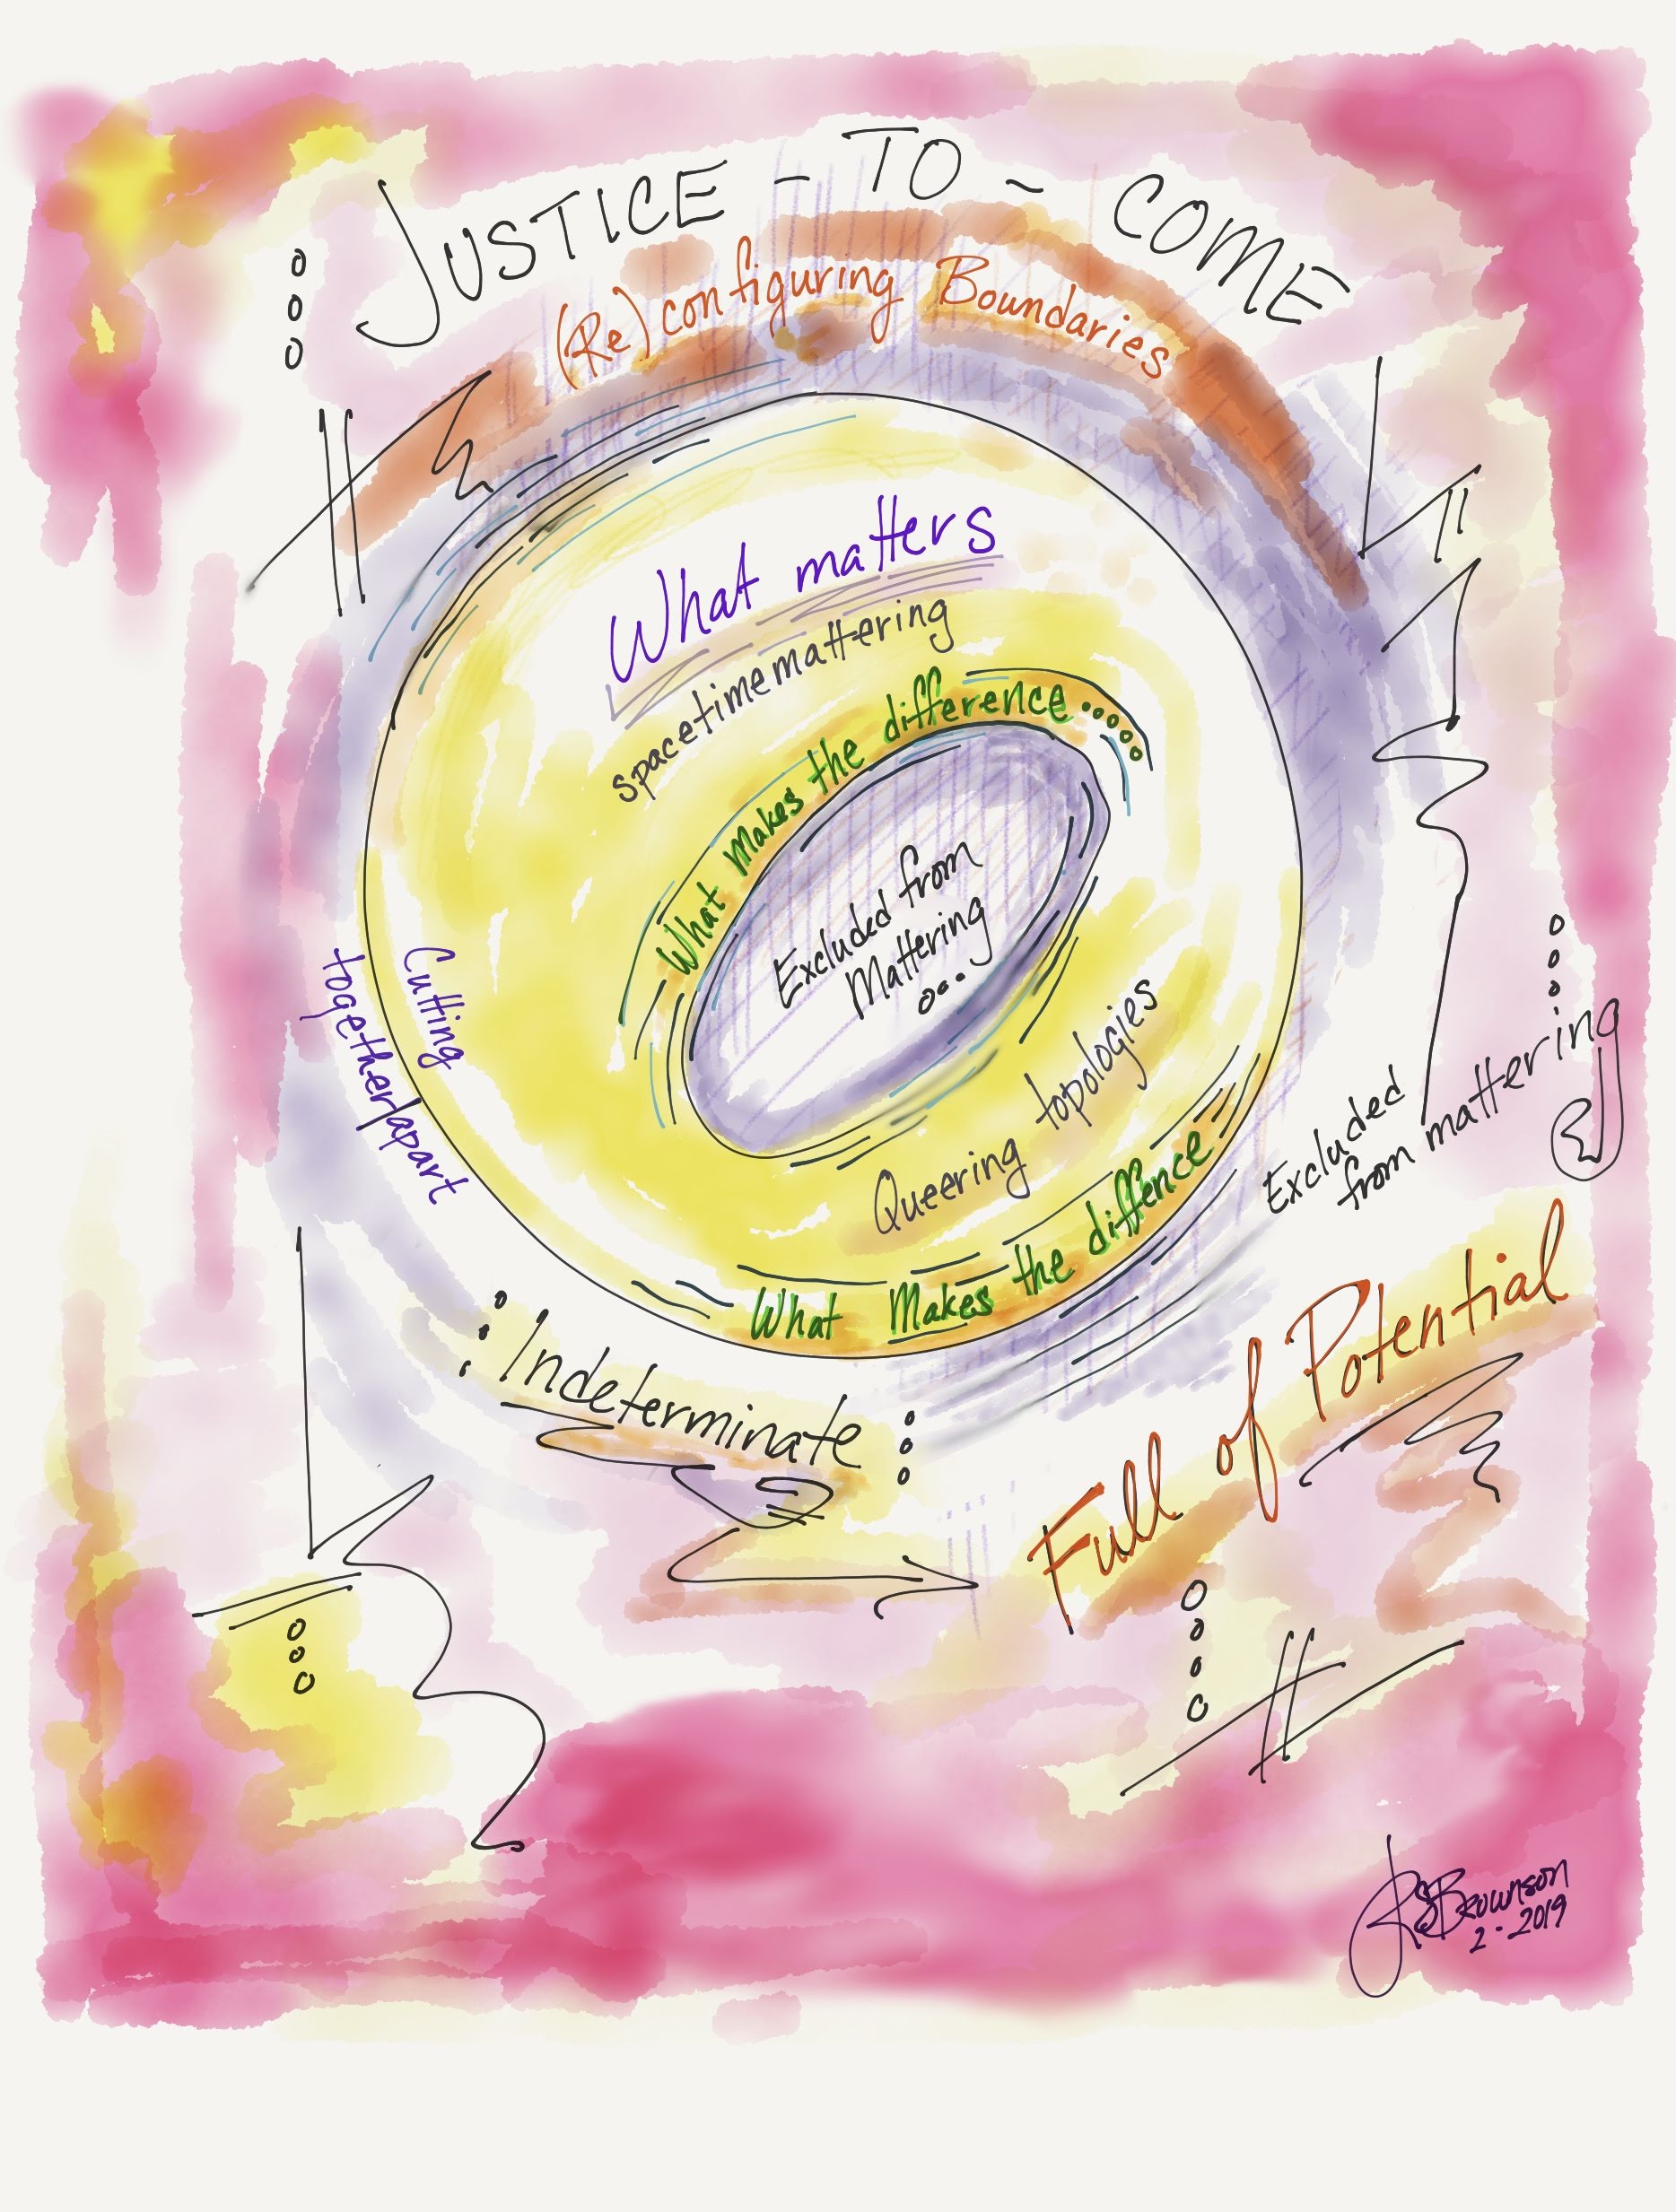 JUSTICE - TO - COME
(Re)configuring Boundaries
What matters
spacetimemattering
What Makes the difference.....
Excluded from
Mattering
...
Cutting
together/apart
Queering topologies
What Makes the diffence
Excluded
from mattering
: Indeterminate :
Full of Potential
JRSBrownson
2-2019